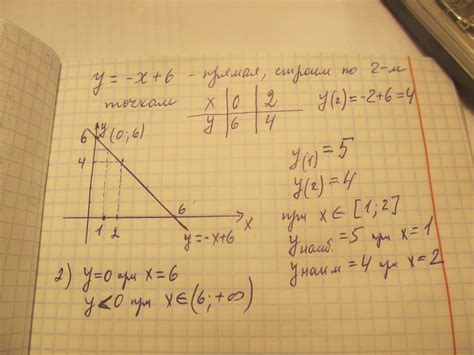 y = -x+6 - прямая, строим по 2-м
точкам
x | 0 | 2
y | 6 | 4
y(2)=-2+6=4
y
6 (0;6)
4
1 2 6 x
y=-x+6
y(1)=5
y(2)=4
при x∈[1;2]
y наиб.=5 при x=1
y наим=4 при x=2
2) y=0 при x=6
y<0 при x∈(6;+∞)